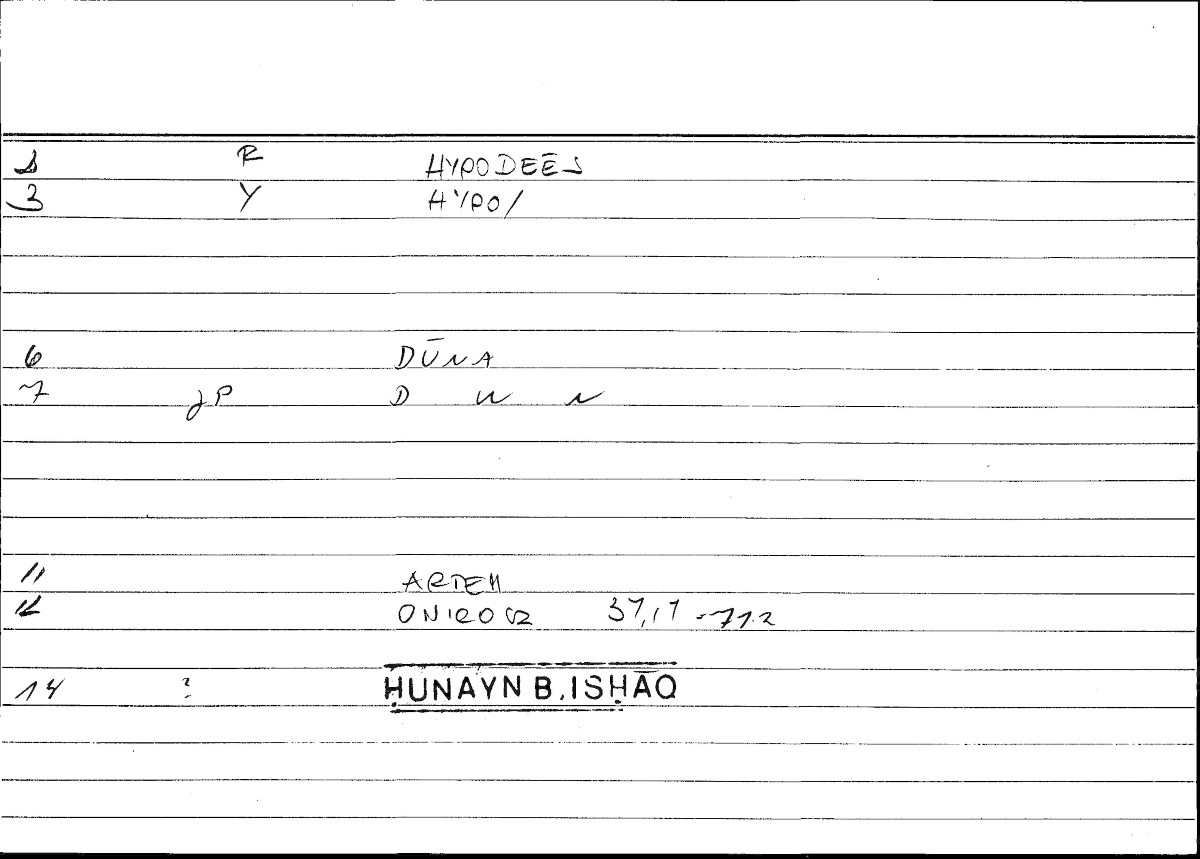 R HYPODEĒS
3 Y HYPO/
6 DŪNA
7 JP D W N
11 ARTEM
12 ONIROCR 37,17 =
14 ? ḤUNAYN B. ISḤĀQ